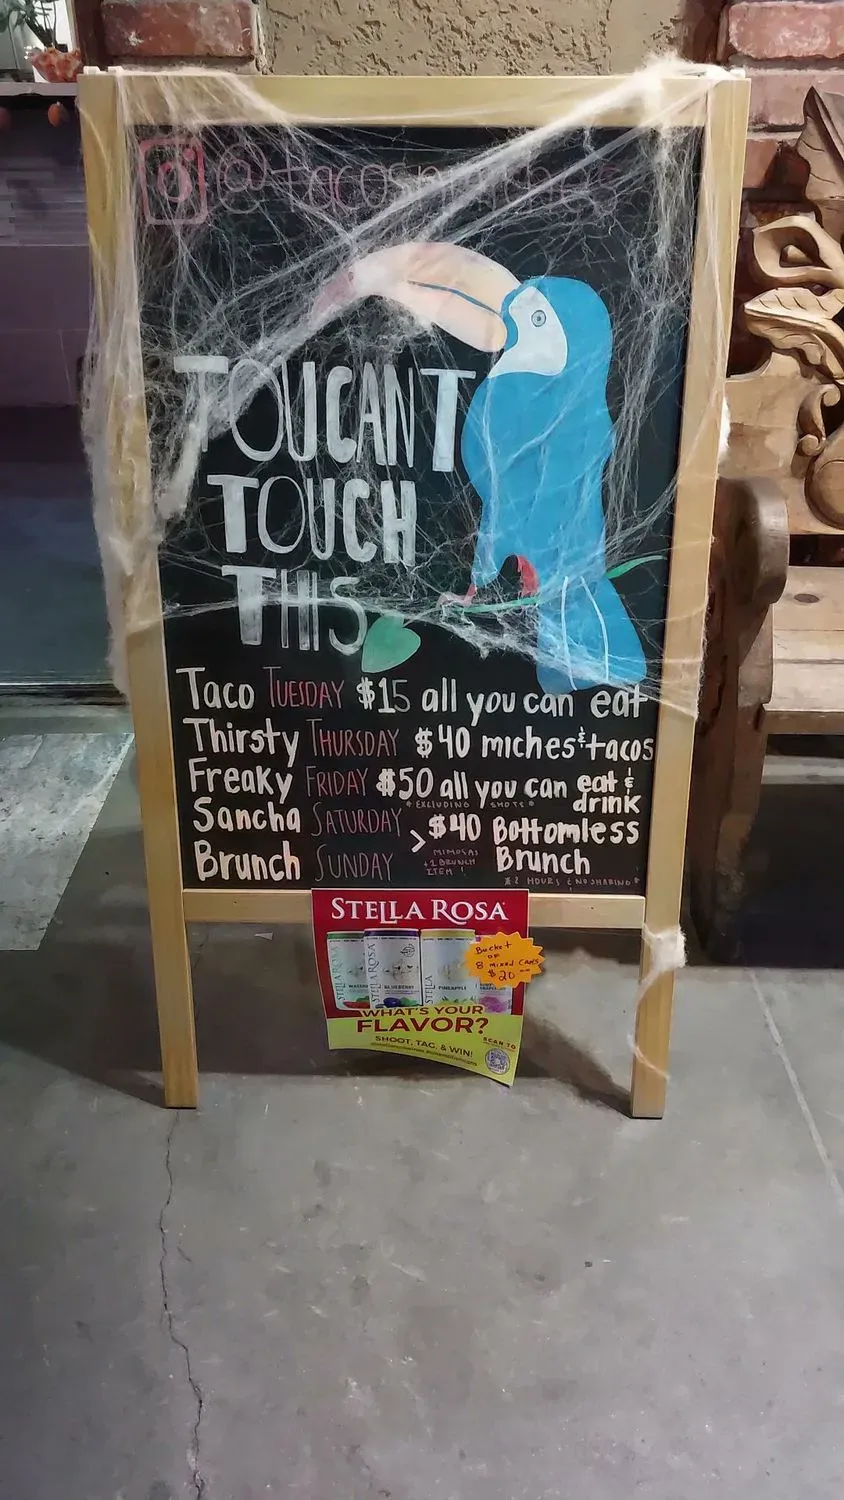 TOUCAN T
TOUCH
THIS
Taco TUESDAY $15 all you can eat
Thirsty THURSDAY $40 miches & tacos
Freaky FRIDAY $50 all you can eat & drink
*EXCLUDING SHOTS*
Sancha SATURDAY
Brunch SUNDAY
> $40 Bottomless Brunch
MIMOSAS
+1 BRUNCH
ITEM!
*2 HOURS & NO SHARING*
STELLA ROSA
Bucket
OF
8 mixed cans
$20
STELLA ROSA
STELLA ROSA
STELLA
BLUEBERRY
PINEAPPLE
WHAT'S YOUR
FLAVOR?
SHOOT, TAG, & WIN!
SCAN TO